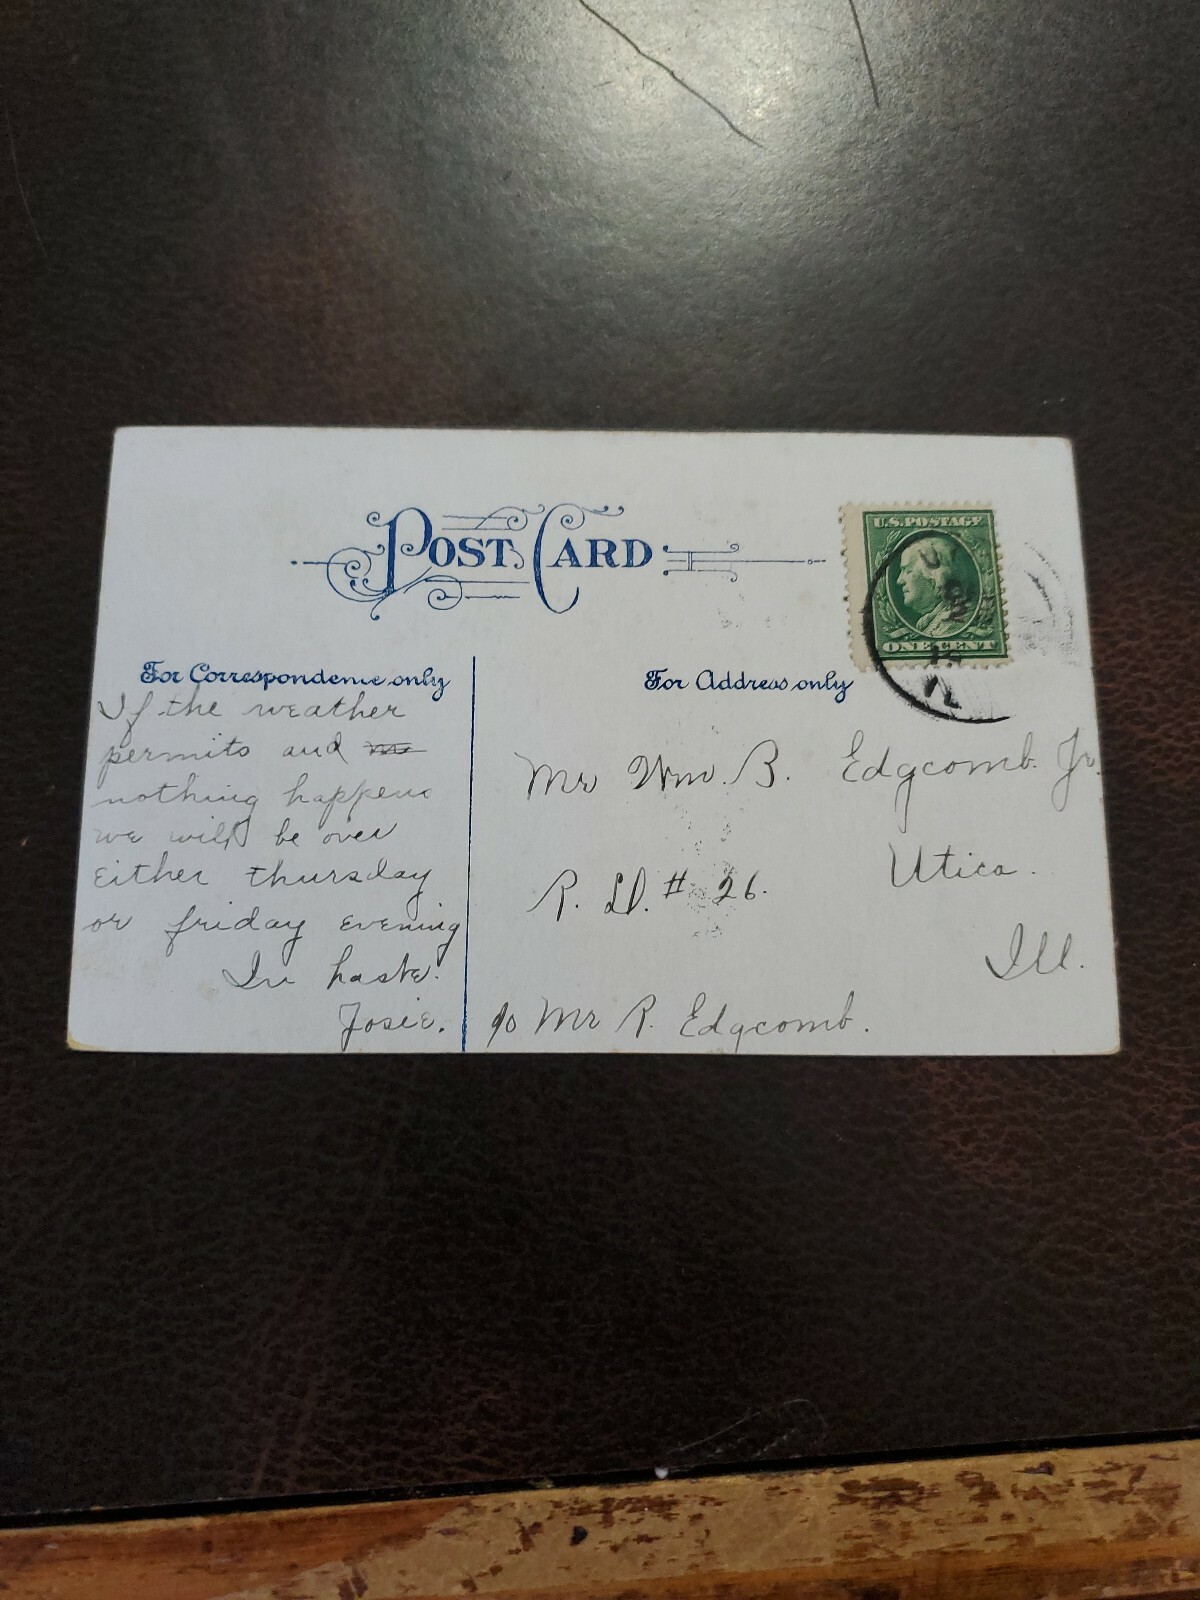 POST CARD
U.S. POSTAGE
ONE CENT
For Correspondence only
If the weather
permits and
nothing happens
we will be over
Either thursday
or friday evening
In haste.
Josie.
For Address only
Mr Wm. B. Edgcomb. Jr.
Utica.
R. D. # 26.
Ill.
c/o Mr R. Edgcomb.